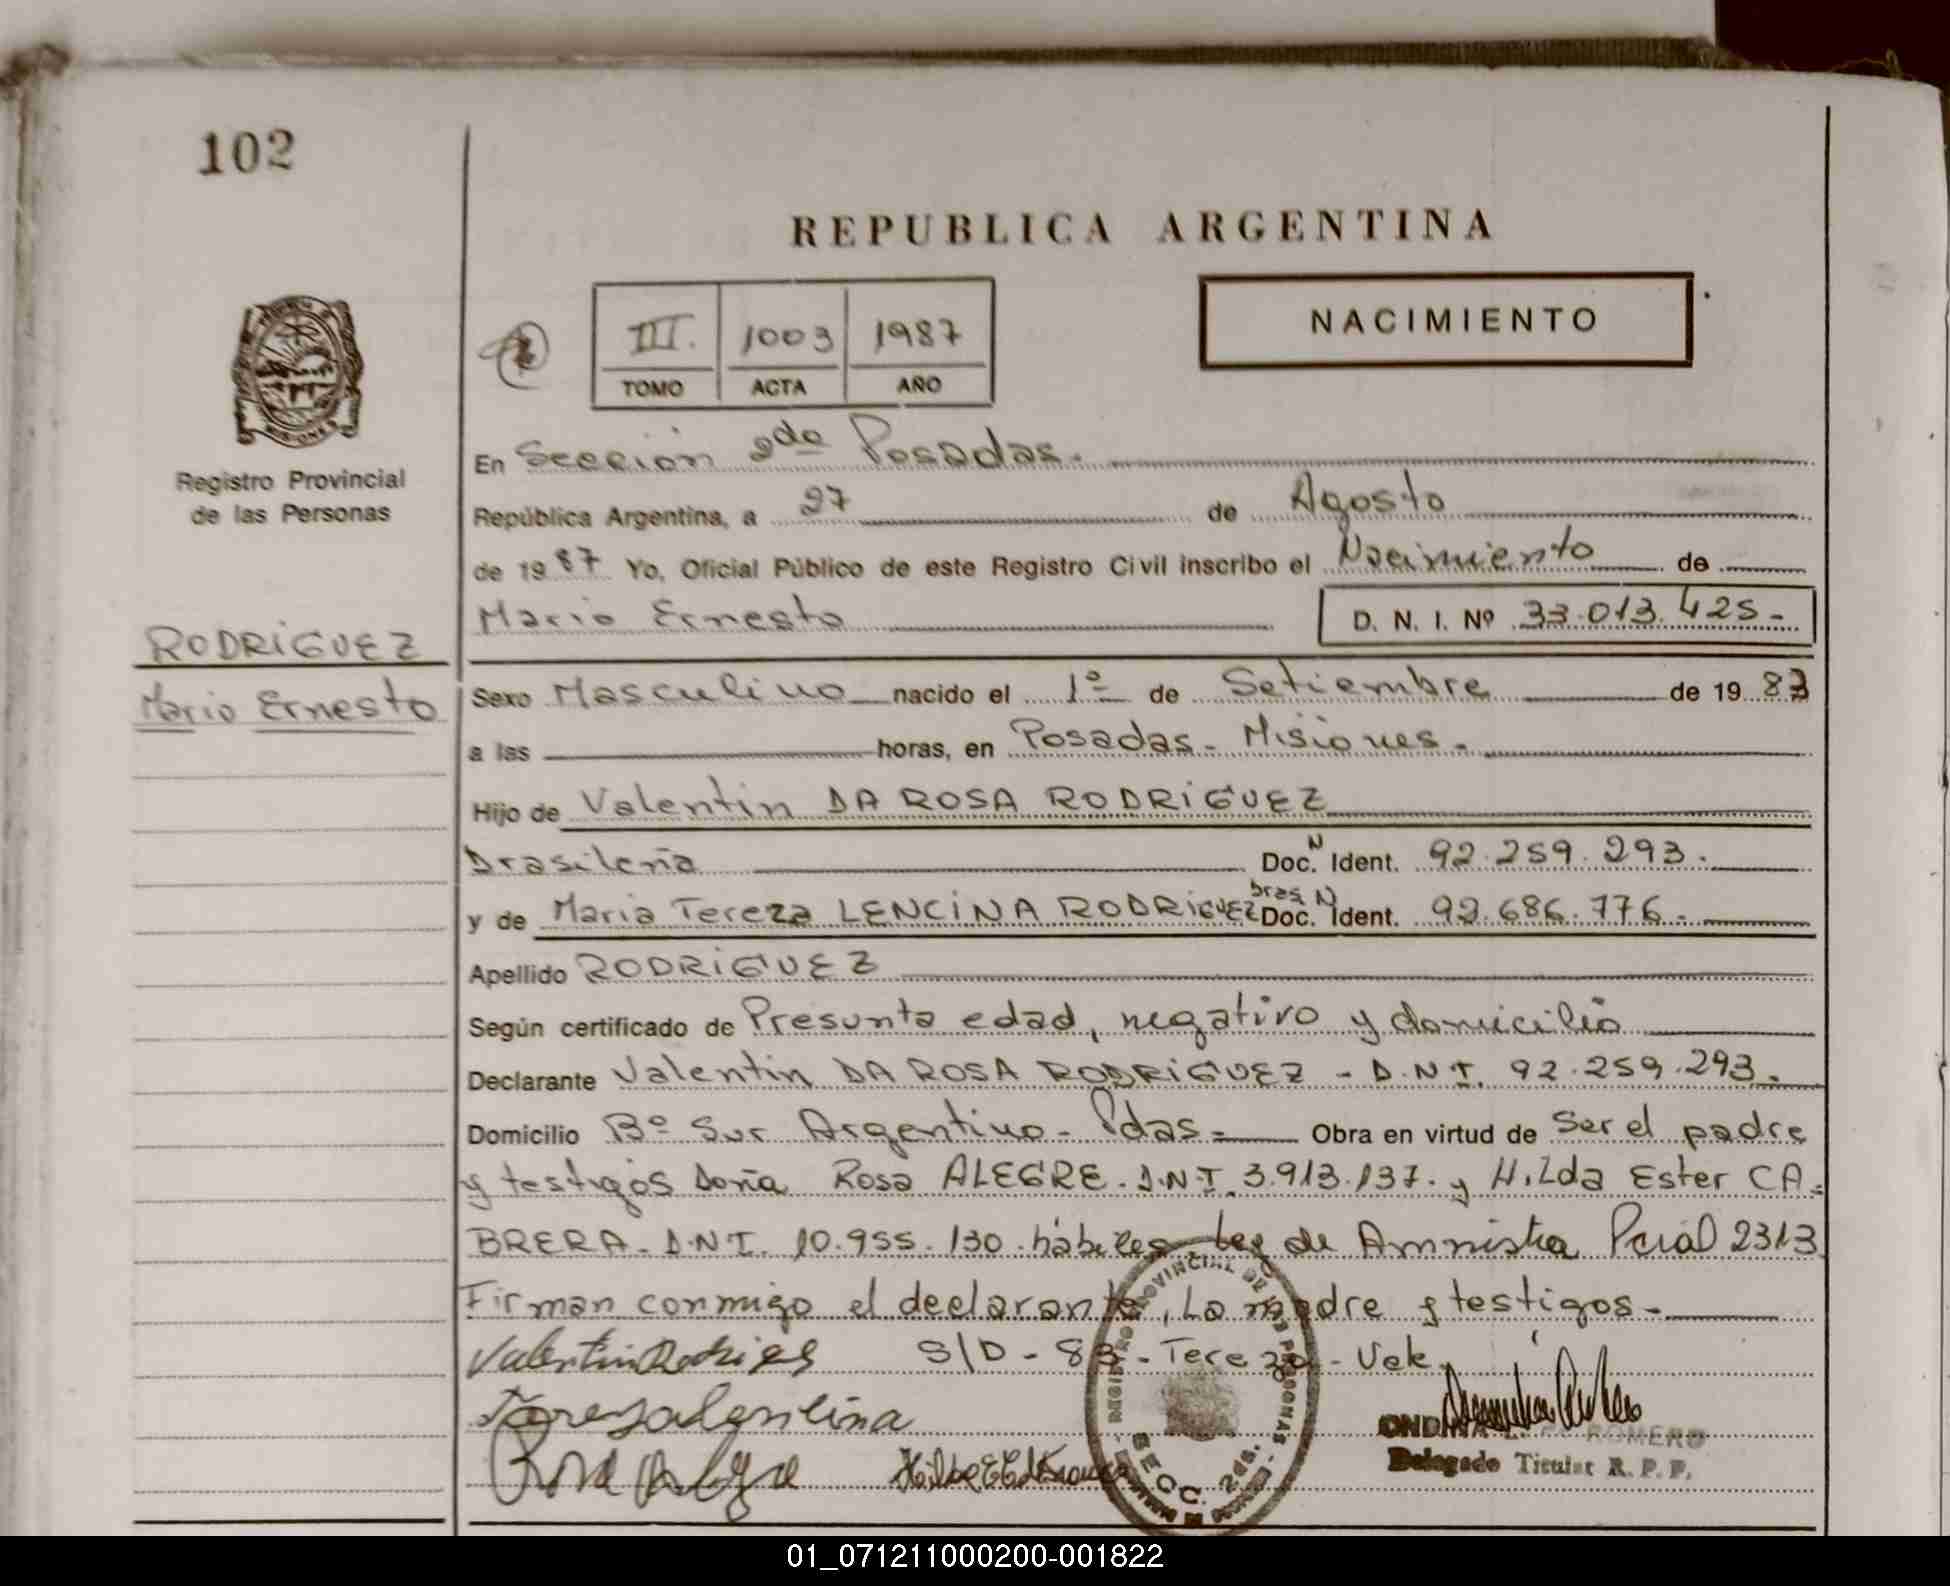 102
REPUBLICA ARGENTINA
III. 1003 1987
TOMO ACTA AÑO
NACIMIENTO
MISIONES
Registro Provincial
de las Personas
RODRIGUEZ
Mario Ernesto
En Sección 2da Posadas.
República Argentina, a 27 de Agosto
de 1987 Yo, Oficial Público de este Registro Civil inscribo el Nacimiento de
Mario Ernesto D. N. I. Nº 33.013.425-
Sexo Masculino nacido el 1º de Setiembre de 1983
a las horas, en Posadas- Misiones.
Hijo de Valentin DA ROSA RODRIGUEZ
Brasileña Doc. N Ident. 92.259.293.
y de Maria Tereza LENCINA RODRIGUEZ bras. Doc. N Ident. 92.686.776-
Apellido RODRIGUEZ
Según certificado de Presunta edad, negativo y domicilio
Declarante Valentin DA ROSA RODRIGUEZ - D.N.I. 92.259.293.
Domicilio Bº Sur Argentino- Pdas- Obra en virtud de Ser el padre
y testigos Doña Rosa ALEGRE. D.N.I. 3.913.137. y Hilda Ester CA-
BRERA- D.N.I. 10.955.130 hábiles Ley de Amnistia Pcial 2313
Firman conmigo el declarante, La madre y testigos-
S/D - 83 - Tereza - Vale.
REGISTRO PROVINCIAL DE LAS PERSONAS
SECC. 2da.
ROMERO
Delegado Titular R. P. P.
01_071211000200-001822